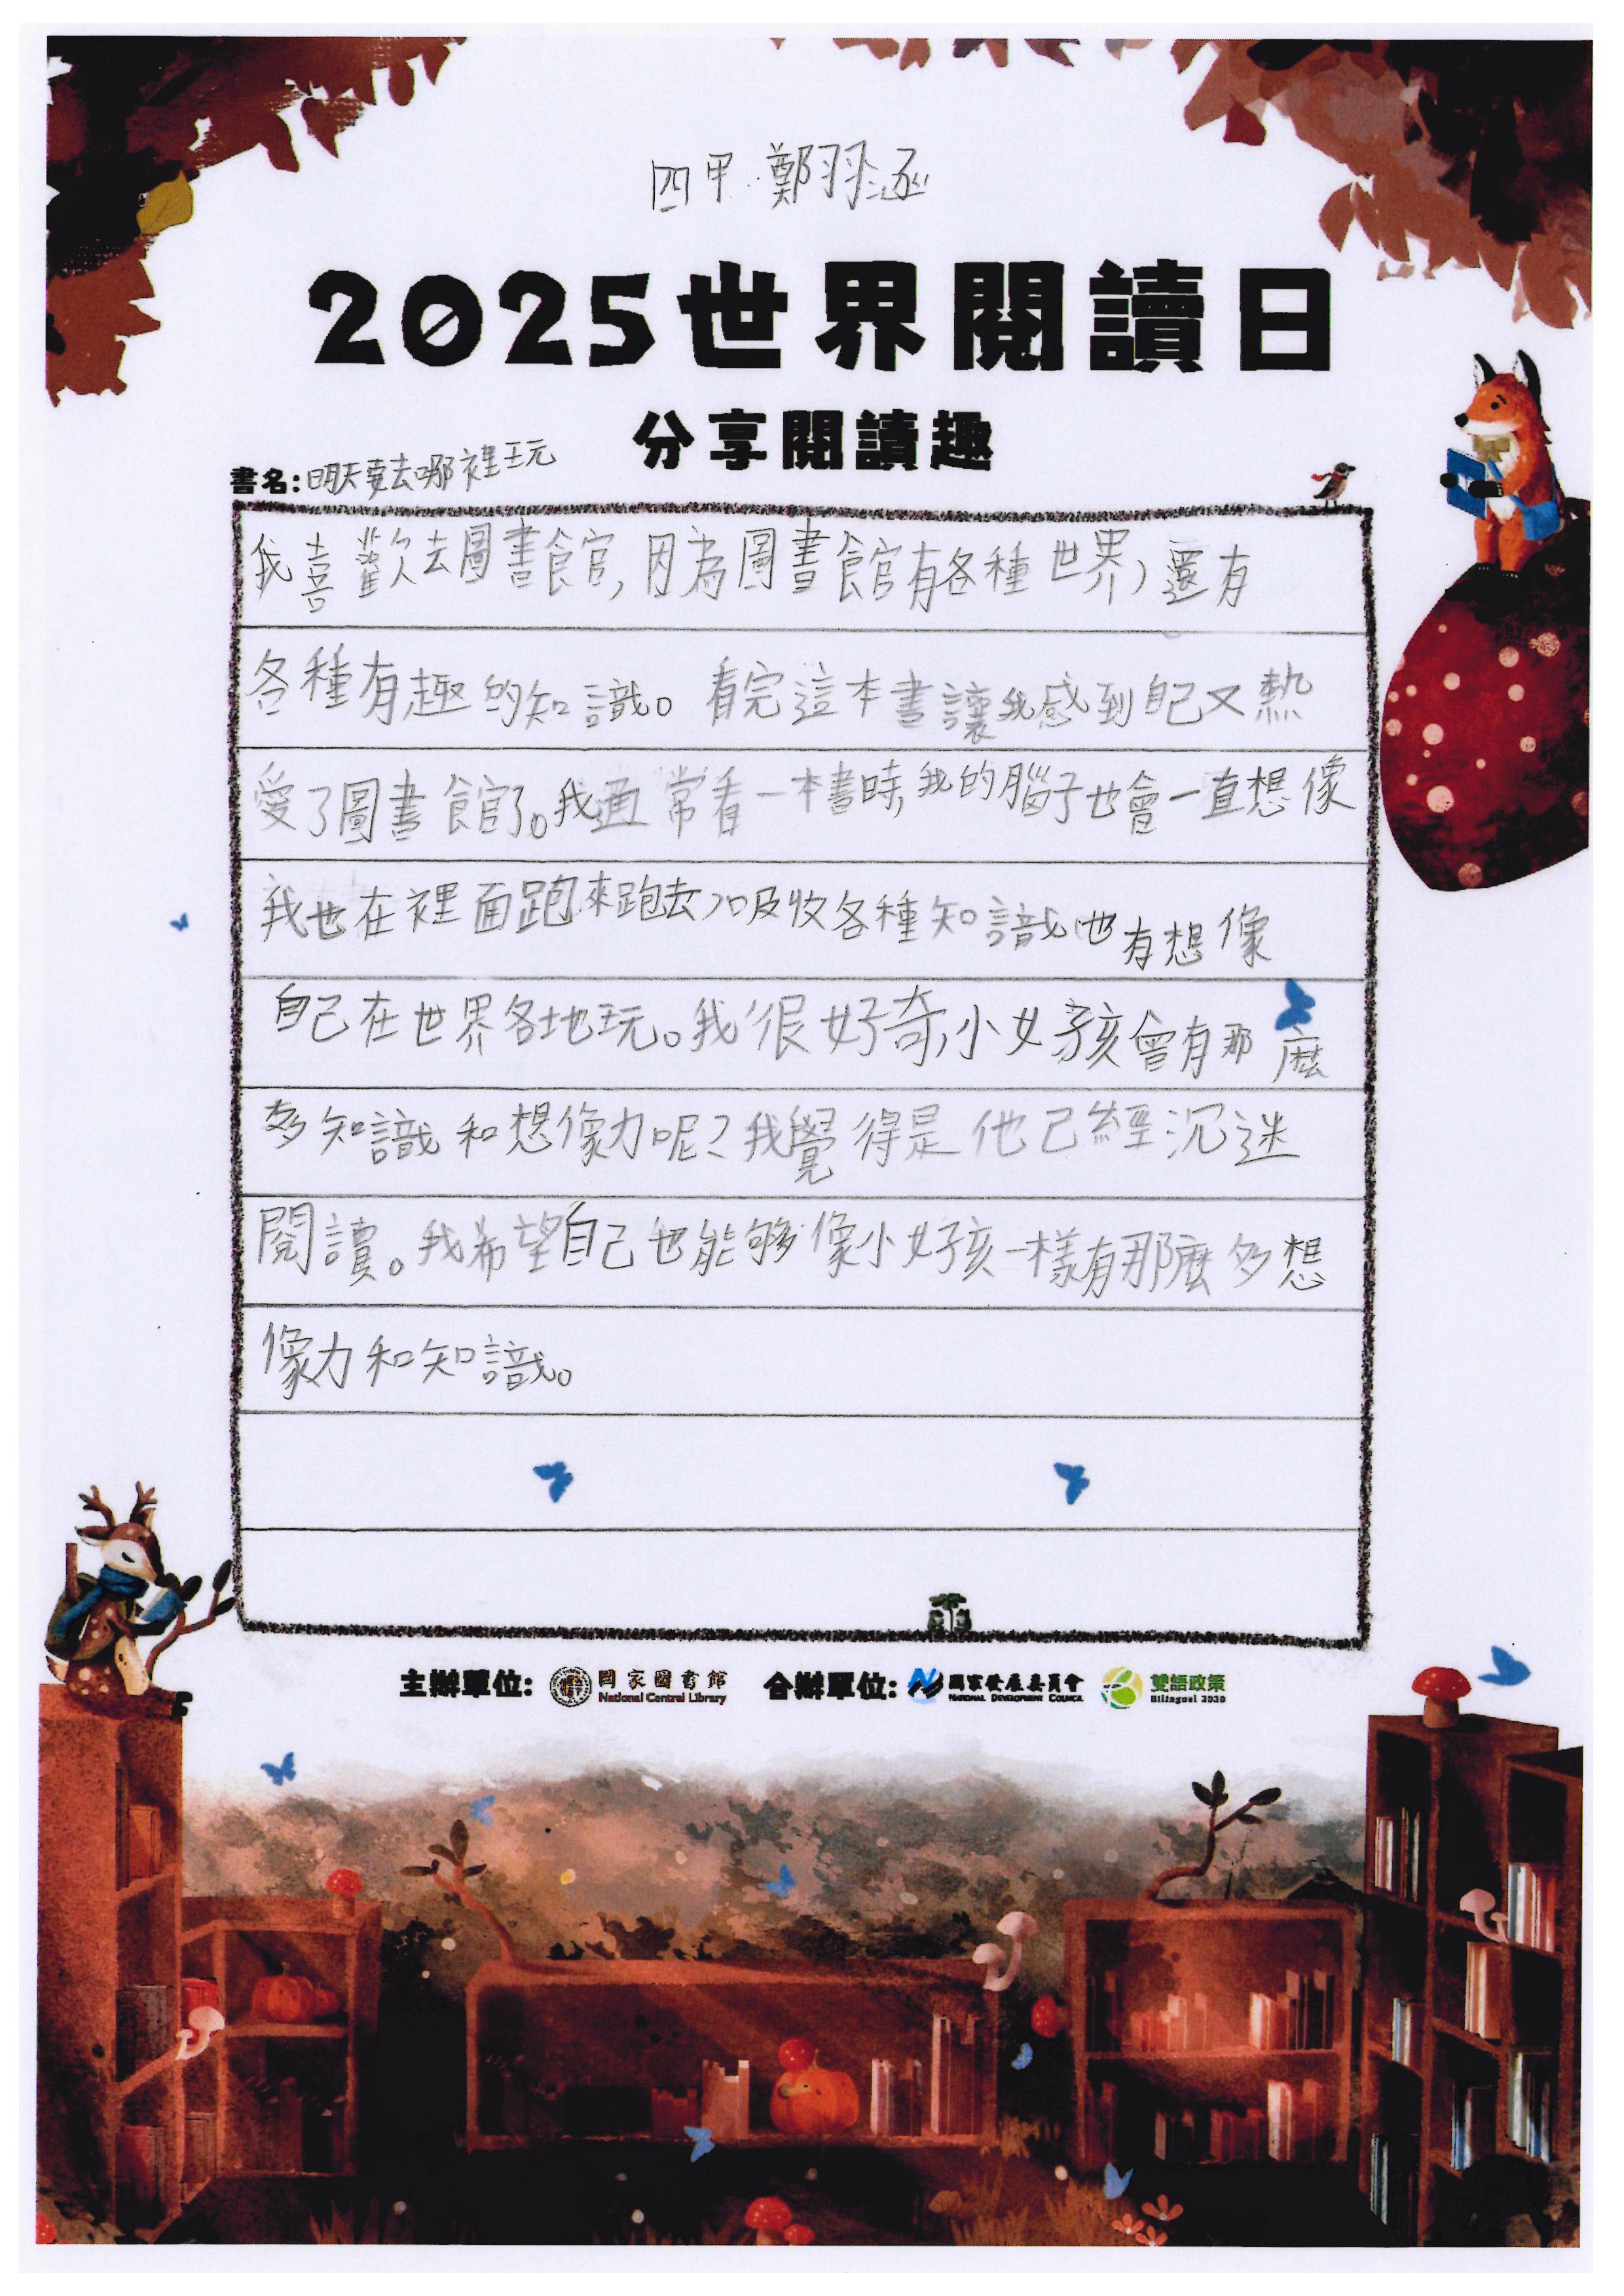 四甲 鄭羽涵
2025世界閱讀日
分享閱讀趣
書名:明天要去哪裡玩
我喜歡去圖書館,因為圖書館有各種世界,還有
各種有趣的知識。看完這本書讓我感到自己又熱
愛了圖書館了。我通常看一本書時,我的腦子也會一直想像
我也在裡面跑來跑去,吸收各種知識也有想像
自己在世界各地玩。我很好奇,小女孩會有那麼
多知識和想像力呢?我覺得是他已經沉迷
閱讀。我希望自己也能夠像小女孩一樣有那麼多想
像力和知識。
主辦單位: 國家圖書館 National Central Library 合辦單位: 國家發展委員會 National Development Council 雙語政策 Bilingual 2030